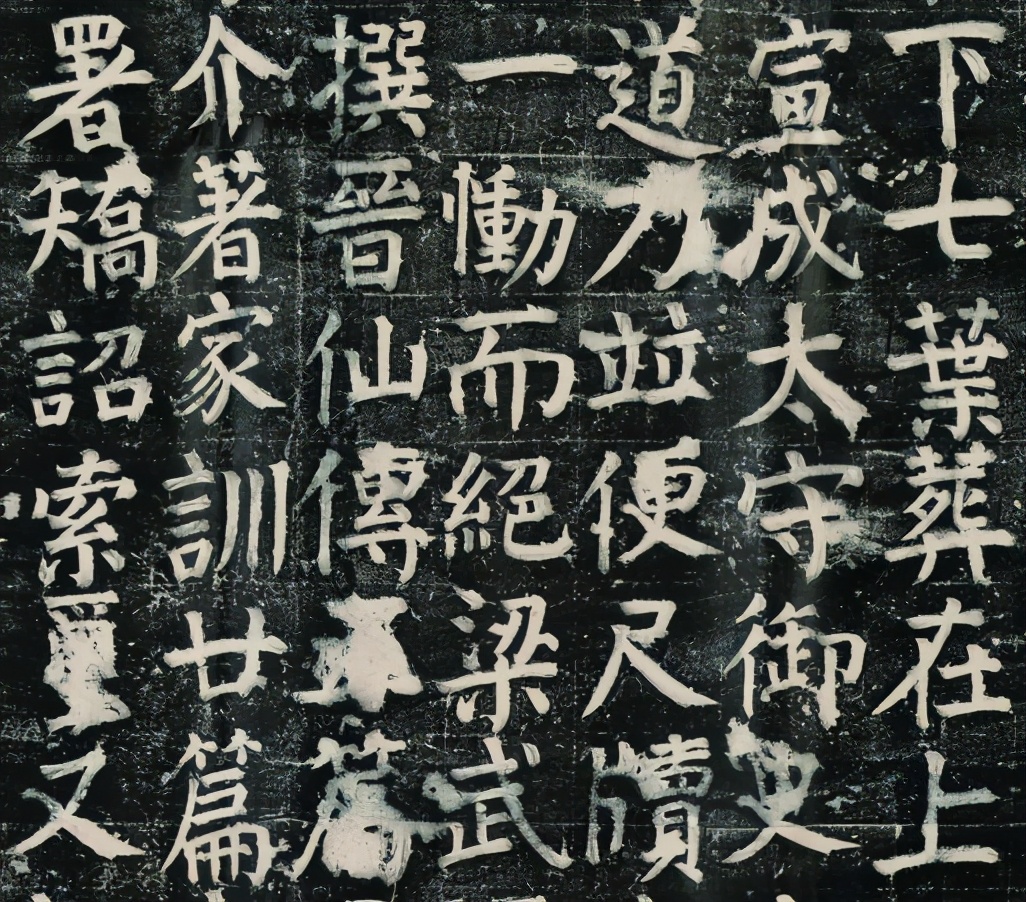 下七葉葬在上
宣成太守御史
道力並便尺牘
一慟而絕梁武
撰晉仙傳篇
介著家訓廿篇
署矯詔索又